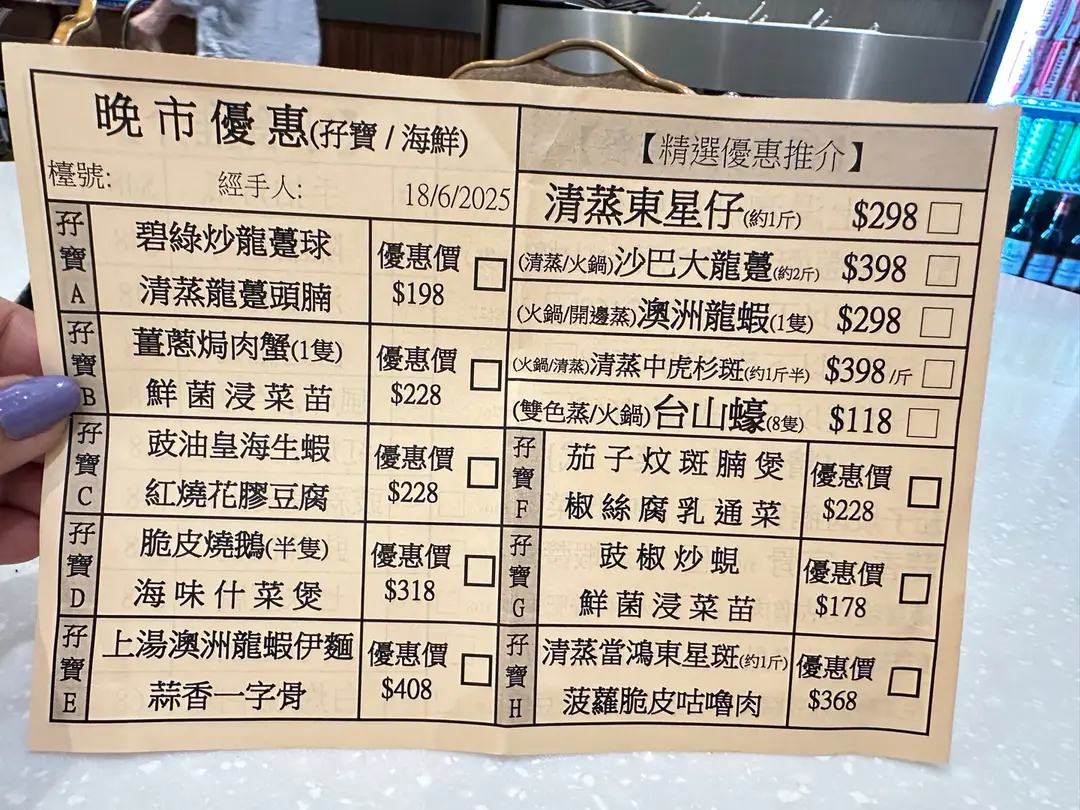 晚市優惠(孖寶 / 海鮮)
檯號:
經手人:
18/6/2025
孖寶A
碧綠炒龍躉球
清蒸龍躉頭腩
優惠價
$198
孖寶B
薑蔥焗肉蟹(1隻)
鮮菌浸菜苗
優惠價
$228
孖寶C
豉油皇海生蝦
紅燒花膠豆腐
優惠價
$228
孖寶D
脆皮燒鵝(半隻)
海味什菜煲
優惠價
$318
孖寶E
上湯澳洲龍蝦伊麵
蒜香一字骨
優惠價
$408
【精選優惠推介】
清蒸東星仔(約1斤) $298
(清蒸/火鍋)沙巴大龍躉(約2斤) $398
(火鍋/開邊蒸)澳洲龍蝦(1隻) $298
(火鍋/清蒸)清蒸中虎杉斑(約1斤半) $398/斤
(雙色蒸/火鍋)台山蠔(8隻) $118
孖寶F
茄子炆斑腩煲
椒絲腐乳通菜
優惠價
$228
孖寶G
豉椒炒蜆
鮮菌浸菜苗
優惠價
$178
孖寶H
清蒸當鴻東星斑(約1斤)
菠蘿脆皮咕嚕肉
優惠價
$368